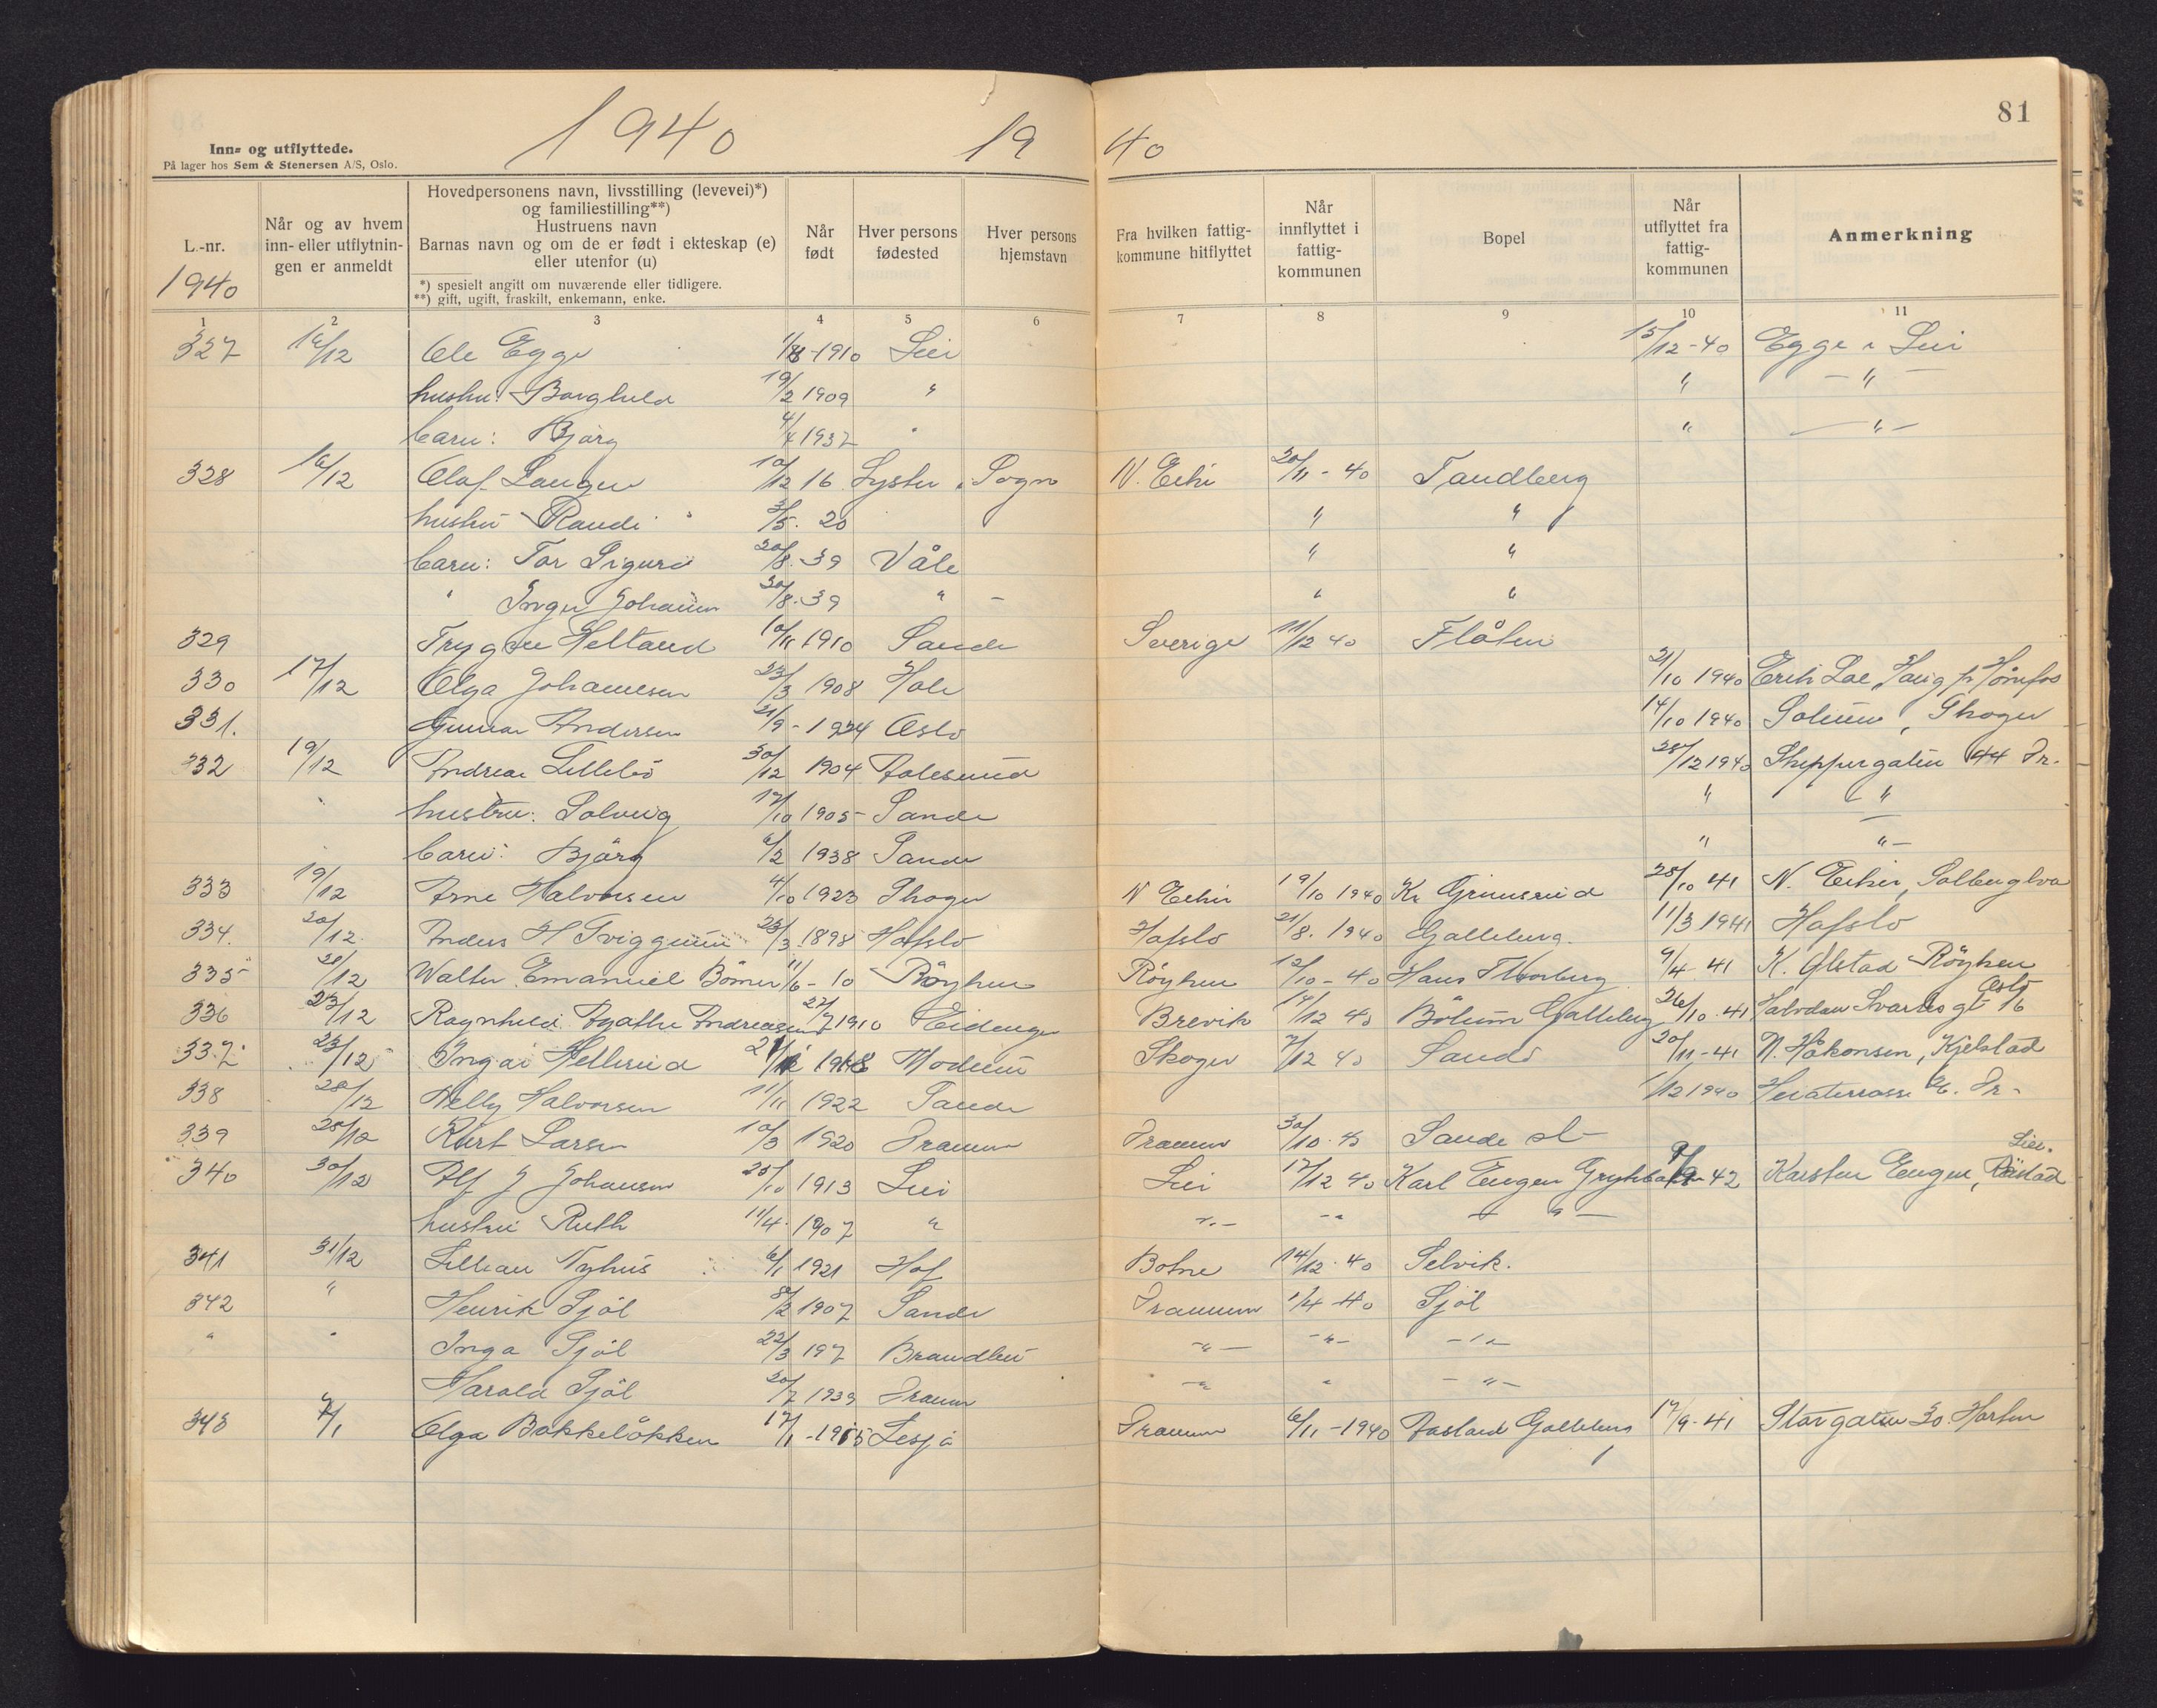 81
1940 19 40
Inn- og utflyttede.
På lager hos Sem & Stenersen A/S, Oslo.
L.-nr.
1940
Når og av hvem inn- eller utflytningen er anmeldt
Hovedpersonens navn, livsstilling (levevei)*)
og familiestilling**)
Hustruens navn
Barnas navn og om de er født i ekteskap (e)
eller utenfor (u)
*) spesielt angitt om nuværende eller tidligere.
**) gift, ugift, fraskilt, enkemann, enke.
Når født
Hver persons fødested
Hver persons hjemstavn
Fra hvilken fattigkommune hitflyttet
Når innflyttet i fattigkommunen
Bopel
Når utflyttet fra fattigkommunen
Anmerkning
1 2 3 4 5 6 7 8 9 10 11
327 16/12 Ole Egge 1910 Lier 15/12-40 Egge i Lier
hustru: Borghild 19/2 1909 " " — " —
barn: Bjørg 4/4 1937 " " — " —
328 16/12 Olaf Laugen 10/12 16 Lyster i Sogn N. Eiker 20/11-40 Tandberg
hustru Randi 3/5. 20 " "
barn: Tor Sigurd 20/8.-39 Våle " "
" Inger Johanne 30/8.-39 " — " "
329 Trygve Helland 10/11 1910 Sande Sverige 11/12 40 Flåten
330 17/12 Olga Johannesen 23/3 1908 Hole 21/10 1940 Erik Loe, Haug pr Hönefos
331. Gunnar Andersen 21/9-1924 Oslo 14/10 1940 Solum, Skoger
332 19/12 Andreas Lillebö 30/12 1904 Aalesund 28/12 1940 Skippergaten 44 Dr.
hustru: Solveig 17/10 1905- Sande " "
barn: Bjørg 6/2 1938 Sande " " —
333 19/12 Arne Halvorsen 4/10 1923 Skoger N Eiker 19/10 1940 Kr Grimsrud 25/10 41 N. Eiker, Solbergelva
334. 20/12. Anders H Tviggum 23/3 1898 Hafslo Hafslo 21/8. 1940 Galleberg. 11/3 1941 Hafslo
335 21/12 Walter Emanuel Bömer 11/6-10 Röyken Röyken 12/10-40 Hans Thorberg 9/4-41 K. Glstad Röyken
336 23/12 Ragnhild Agathe Andreasen 22/7 1910 Eidanger Brevik 14/12 40 Bölum Galleberg 26/10.41 Halvdan Svartes gt 16 Oslo
337. 23/12 Ingar Hellerud 1918 Modum Skoger 7/12 40 Sande 20/11-41 N. Håkonsen, Kjelstad
338 28/12 Nelly Halvorsen 11/11 1922 Sande 1/12 1940 Dr.
339 28/12 Kurt Larsen 10/3 1920 Drammen Drammen 30/10.40 Sande st
340 30/12 Alf J Johansen 25/10 1913 Lier Lier 17/12 40 Karl Engen 9-42 Karsten Engen, Lier.
hustru Ruth 11/4. 1907 " " — " — " —
341 31/12 Lillian Nyhus 6/1 1921 Hof Botne 14/12.40 Selvik.
342 " Henrik Sjöl 8/2 1907 Sande Drammen 1/4 40 Sjöl
" " Inga Sjöl 22/3 197 Brandbu — " — — " — — " —
Harald Sjöl 20/7 1939 Drammen — " " — " —
343 7/1 Olga Bakkelökken 17/1-1915 Lesja Drammen 6/11-1940 Aasland Galleberg 17/9-41 Storgaten 30. Horten